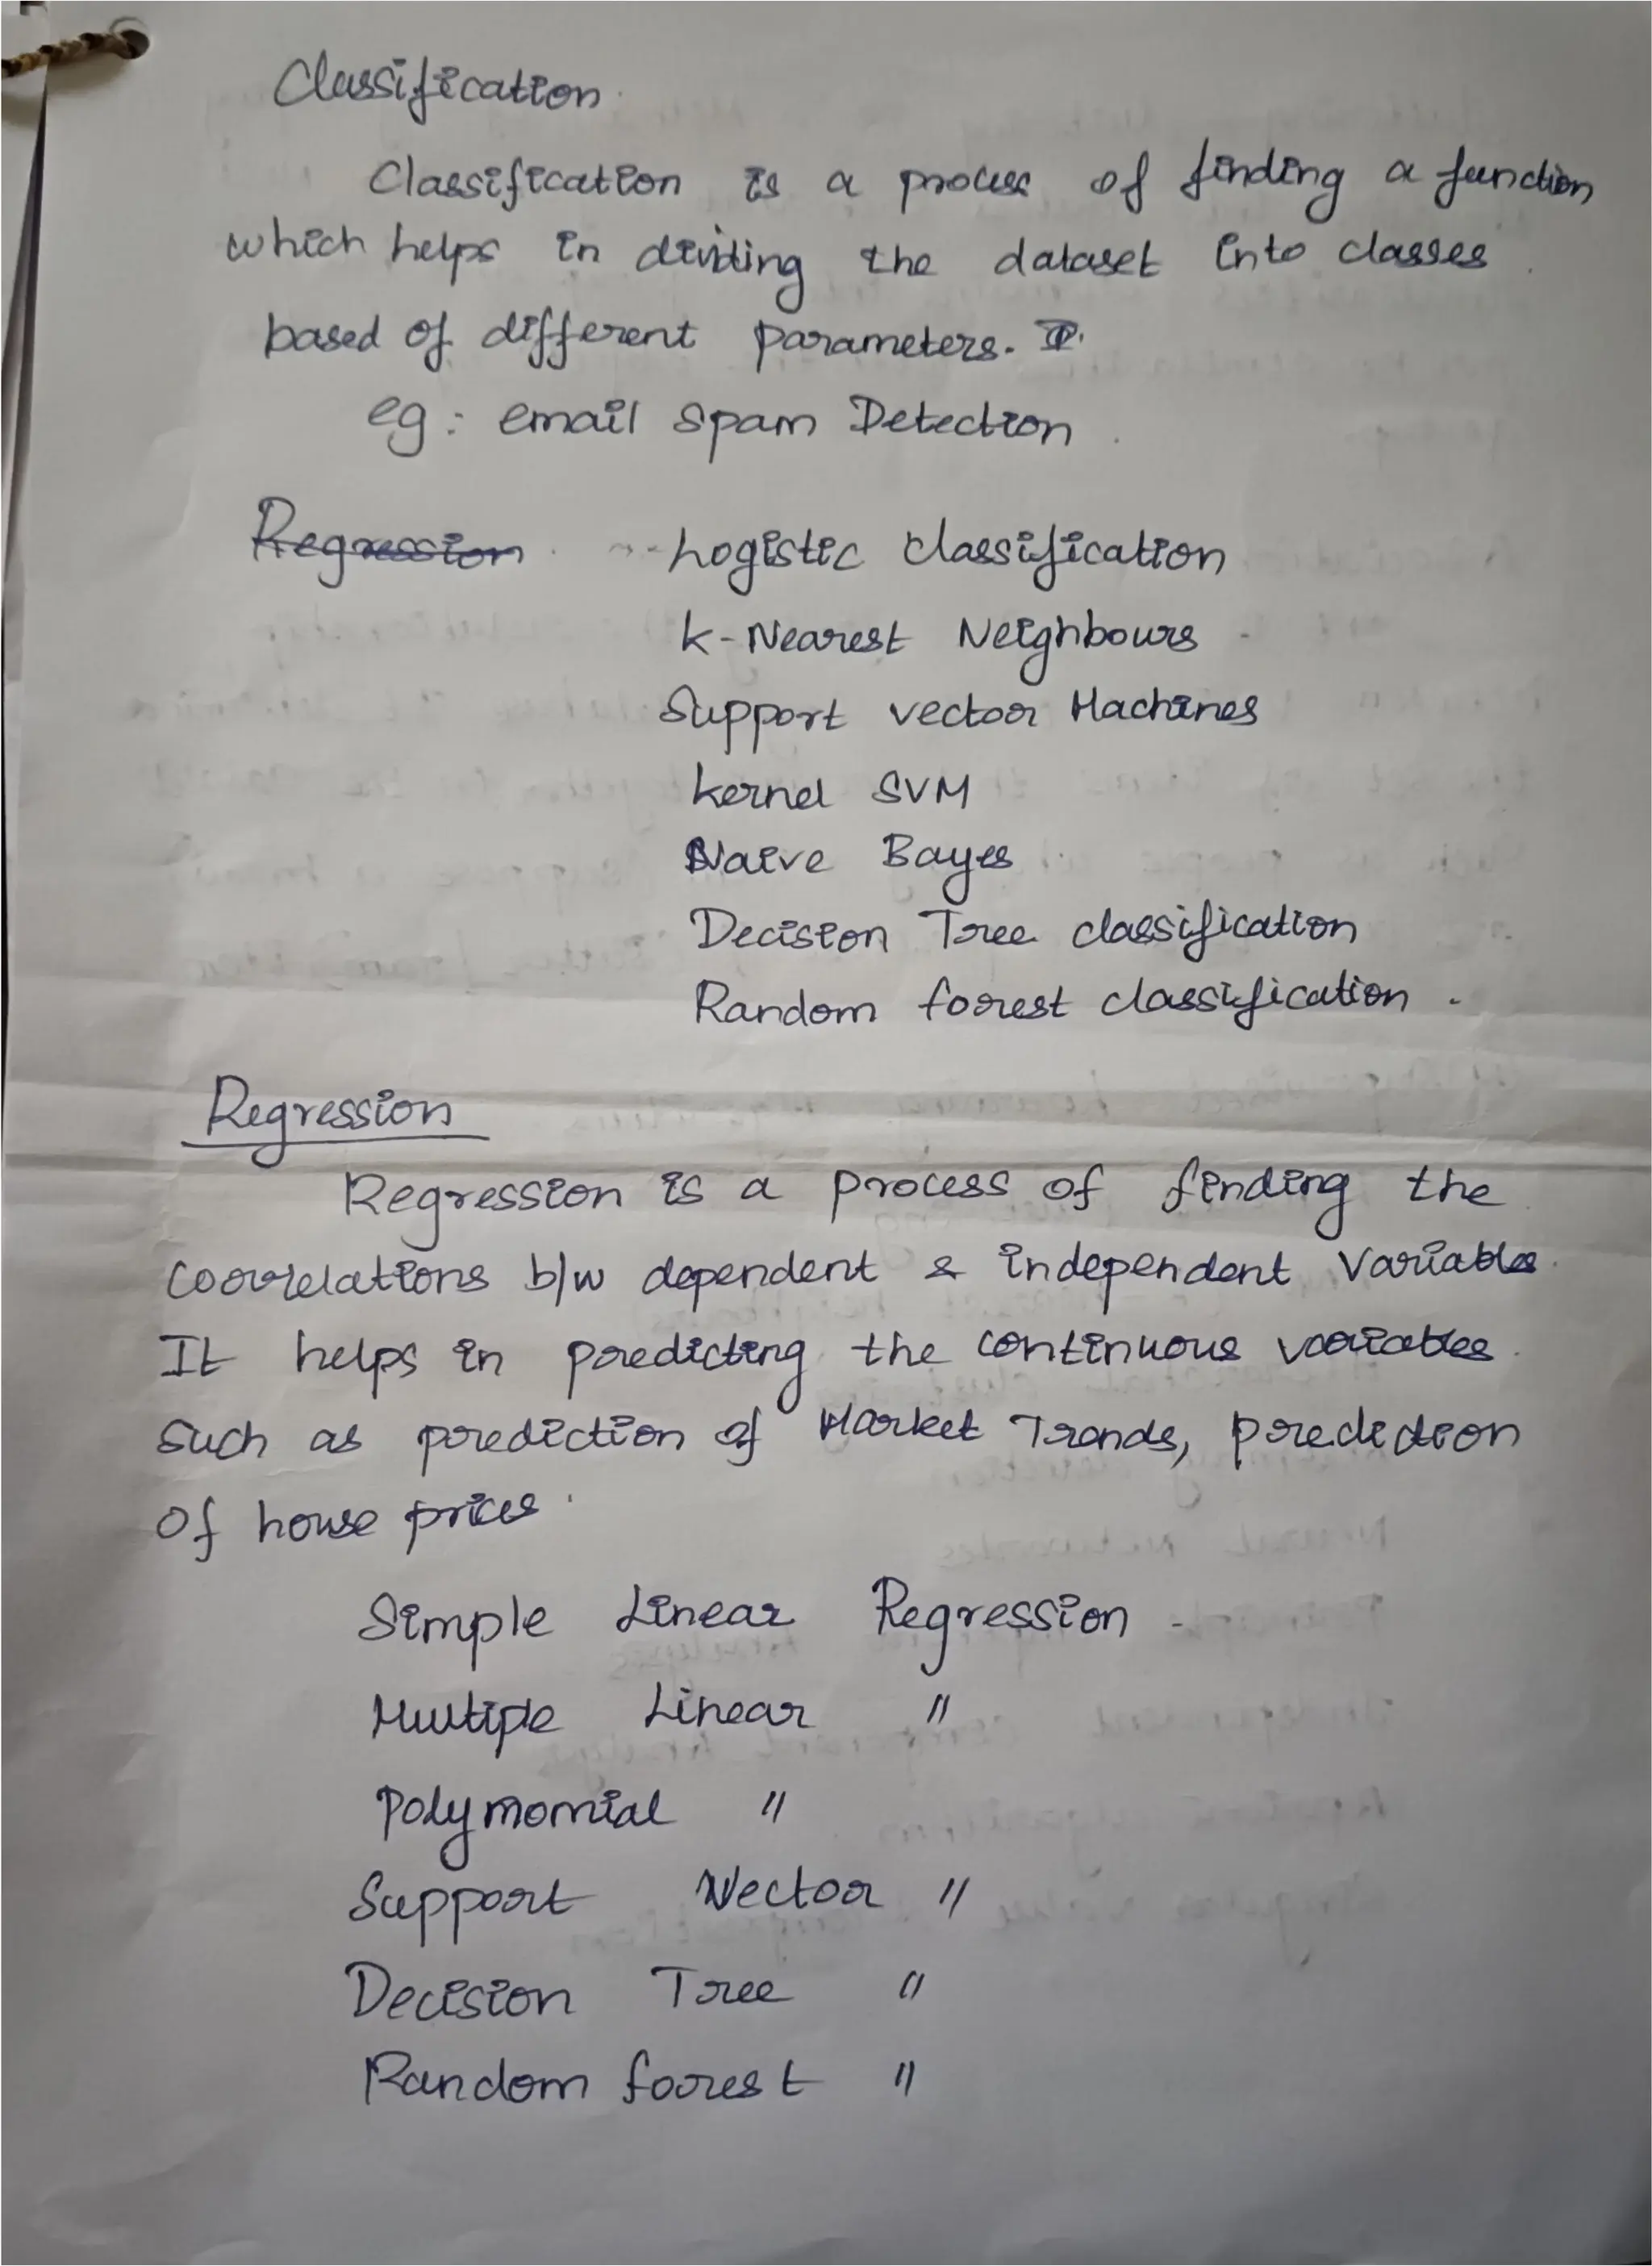 Classification
Classification is a process of finding a function
which helps in dividing the dataset into classes
based of different parameters.
eg: email spam Detection
Regression Logistic classification
k-Nearest Neighbours
Support vector Machines
kernel SVM
Naive Bayes
Decision Tree classification
Random forest classification
Regression
Regression is a process of finding the
correlations b/w dependent & independent Variables
It helps in predicting the continuous variables
such as prediction of Market Trends, prediction
of house prices
Simple Linear Regression
Multiple Linear "
Polymomial "
Support Vector "
Decision Tree "
Random forest "